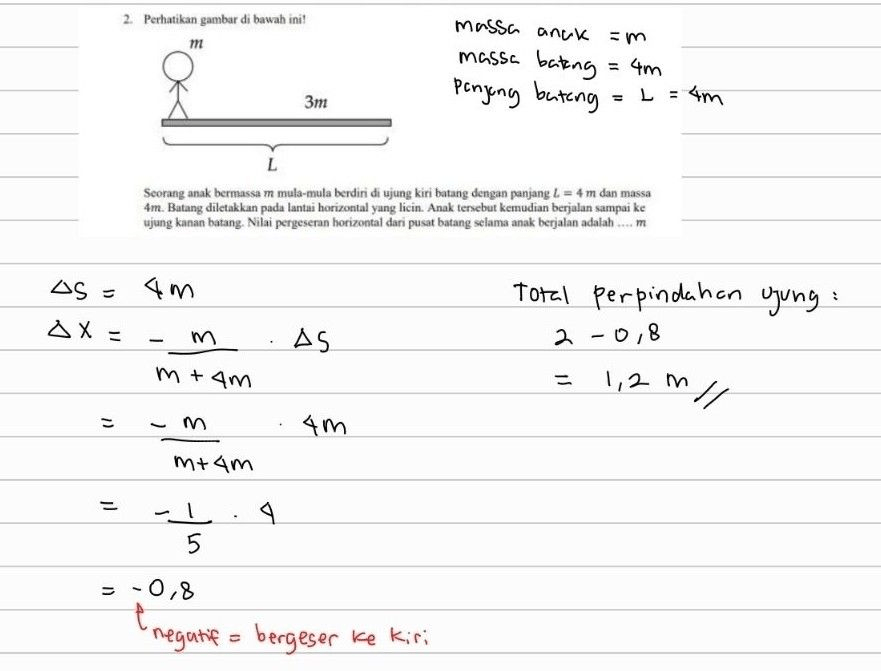 2. Perhatikan gambar di bawah ini!
m
3m
L
massa anak = m
massa batang = 4m
Panjang batang = L = 4m
Seorang anak bermassa m mula-mula berdiri di ujung kiri batang dengan panjang L = 4 m dan massa
4m. Batang diletakkan pada lantai horizontal yang licin. Anak tersebut kemudian berjalan sampai ke
ujung kanan batang. Nilai pergeseran horizontal dari pusat batang selama anak berjalan adalah .... m
ΔS = 4m
ΔX = - m / m + 4m . ΔS
= - m / m + 4m . 4m
= - 1 / 5 . 4
= -0,8
negatif = bergeser ke kiri
Total perpindahan ujung :
2 - 0,8
= 1,2 m //